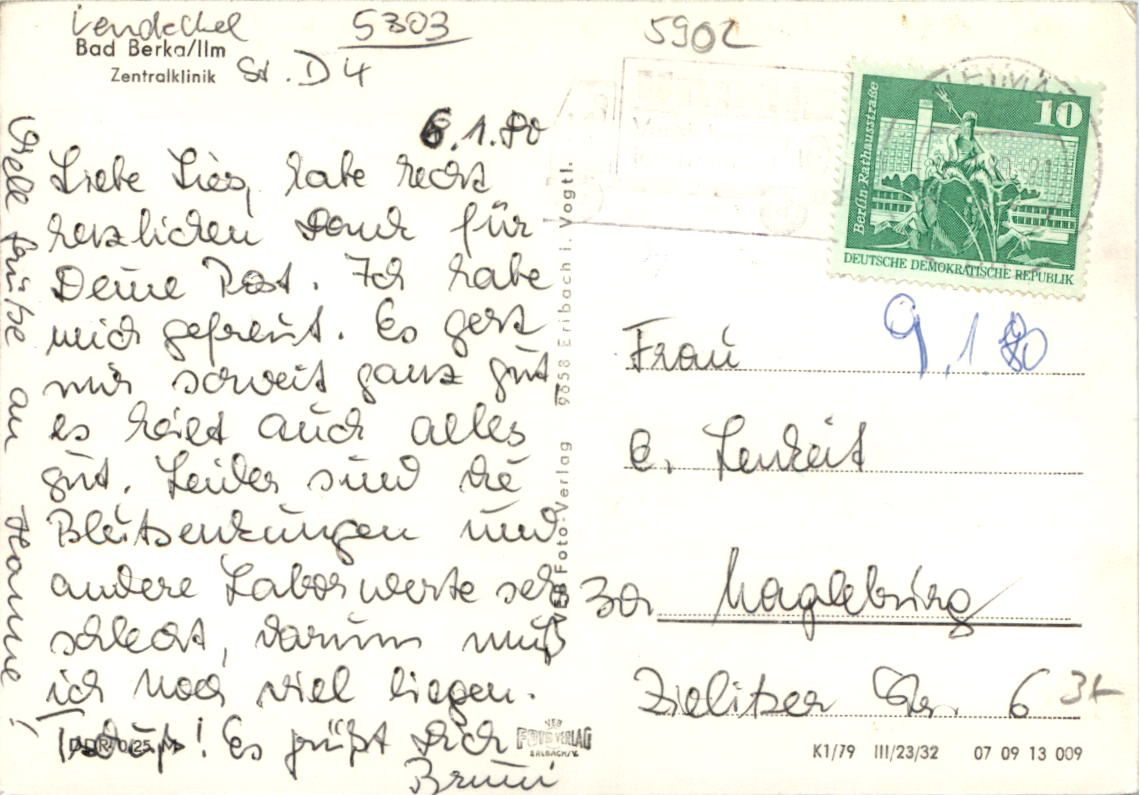 5303
Bad Berka/Ilm
Zentralklinik St. D 4
6.1.80
Liebe Lies, habe recht
herzlichen Dank für
Deine Post. Ich habe
mich gefreut. Es geht
mir soweit ganz gut
es heilt auch alles
gut. Leider sind die
Blutsenkungen und
andere Laborwerte sehr
schlecht, darum muß
ich noch viel liegen.
Tschüß! Es grüßt Dich
Bruni
Viele Grüße an Hanne!
DDR 0,25 M
VEB Foto-Verlag 9658 Erlbach i. Vogtl.
VEB
FOTO VERLAG
ERLBACH/V.
5902
WEIMAR
10
Berlin-Rathausstraße
DEUTSCHE DEMOKRATISCHE REPUBLIK
9.1.80
Frau
E. Lenkeit
30 Magdeburg
Zielitzer Str. 6
K1/79 III/23/32 07 09 13 009